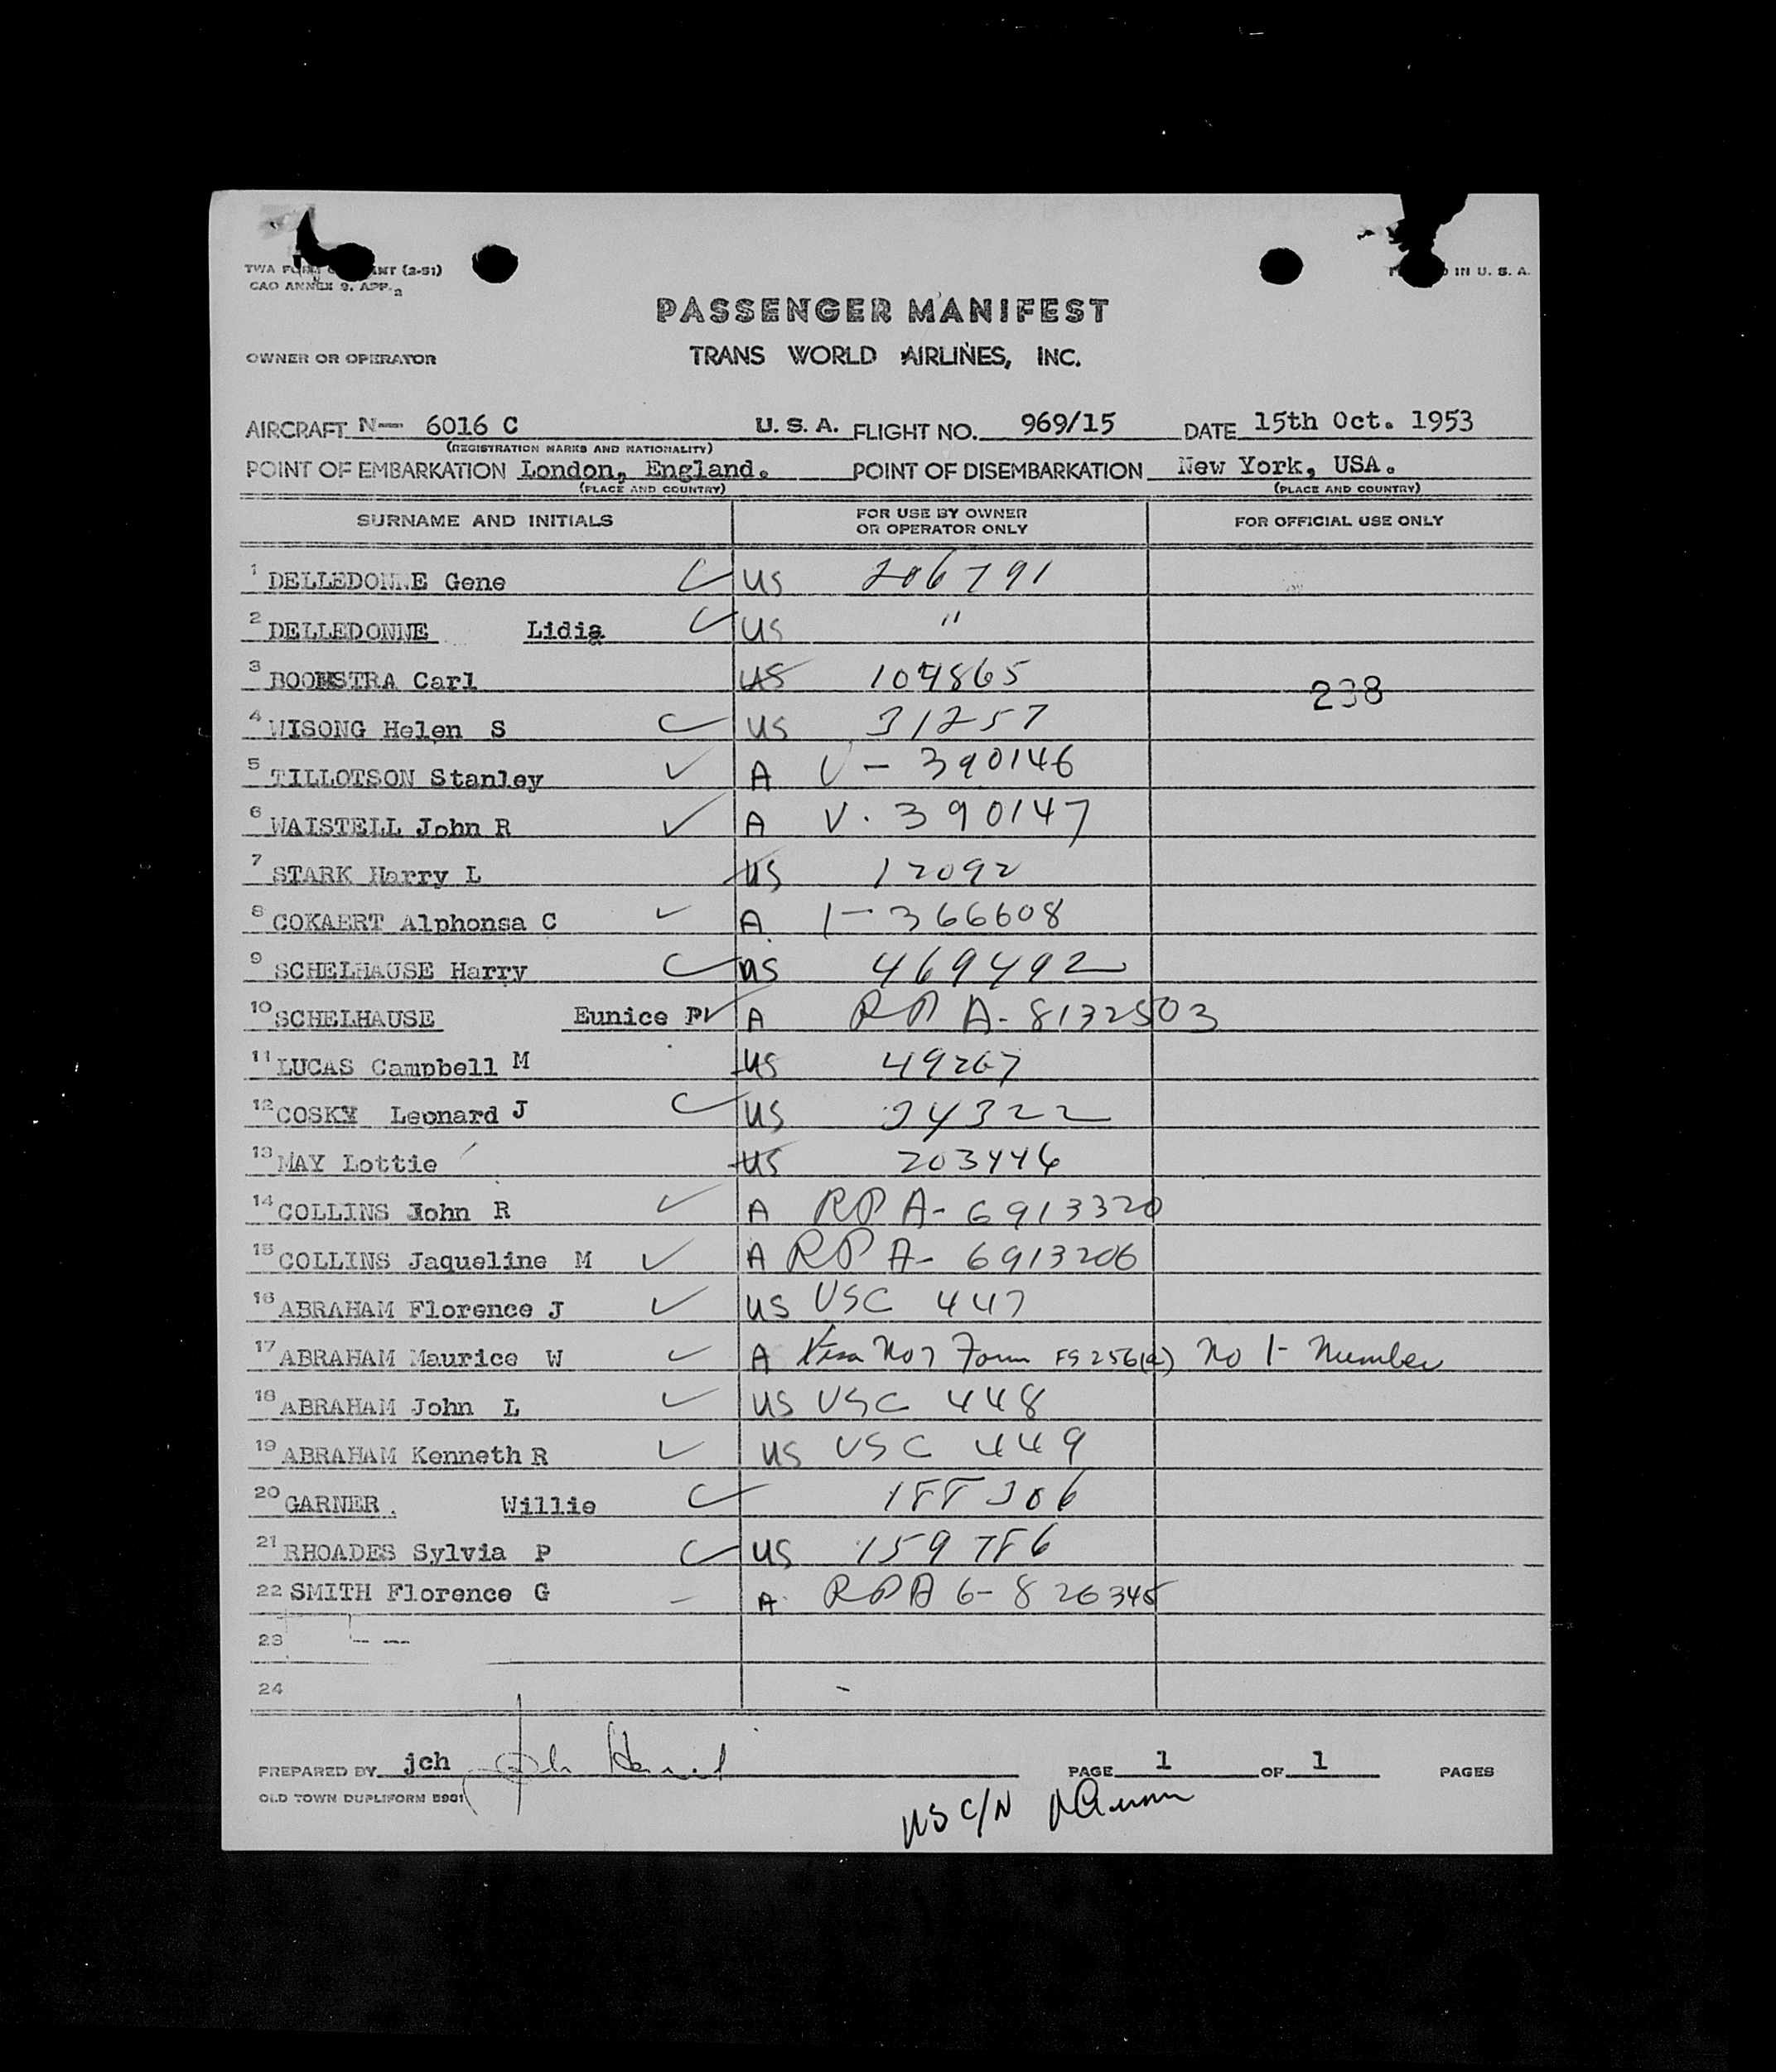 CAO ANNEX 9. APP. 2
IN U. S. A.
PASSENGER MANIFEST
OWNER OR OPERATOR TRANS WORLD AIRLINES, INC.
AIRCRAFT N— 6016 C U. S. A. FLIGHT NO. 969/15 DATE 15th Oct. 1953
(REGISTRATION MARKS AND NATIONALITY)
POINT OF EMBARKATION London, England. POINT OF DISEMBARKATION New York, USA.
(PLACE AND COUNTRY) (PLACE AND COUNTRY)
SURNAME AND INITIALS FOR USE BY OWNER OR OPERATOR ONLY FOR OFFICIAL USE ONLY
1 DELLEDONNE Gene US 206791
2 DELLEDONNE Lidia US "
3 BOOMSTRA Carl US 104865 238
4 WISONG Helen S US 31257
5 TILLOTSON Stanley A V - 390146
6 WAISTELL John R A V. 390147
7 STARK Harry L US 12092
8 COKAERT Alphonsa C A 1-366608
9 SCHELHAUSE Harry US 469492
10 SCHELHAUSE Eunice P A RP A-8132503
11 LUCAS Campbell M US 49267
12 COSKY Leonard J US 34322
13 MAY Lottie US 203446
14 COLLINS John R A RP A-6913320
15 COLLINS Jaqueline M A RP A-6913206
16 ABRAHAM Florence J US USC 447
17 ABRAHAM Maurice W A Visa No 7 Form FS 256(a) No 1- Number
18 ABRAHAM John L US USC 448
19 ABRAHAM Kenneth R US USC 449
20 GARNER. Willie 188306
21 RHOADES Sylvia P US 159786
22 SMITH Florence G A RPA 6-826345
23
24
PREPARED BY jch PAGE 1 OF 1 PAGES
OLD TOWN DUPLIFORM 5901
US C/N